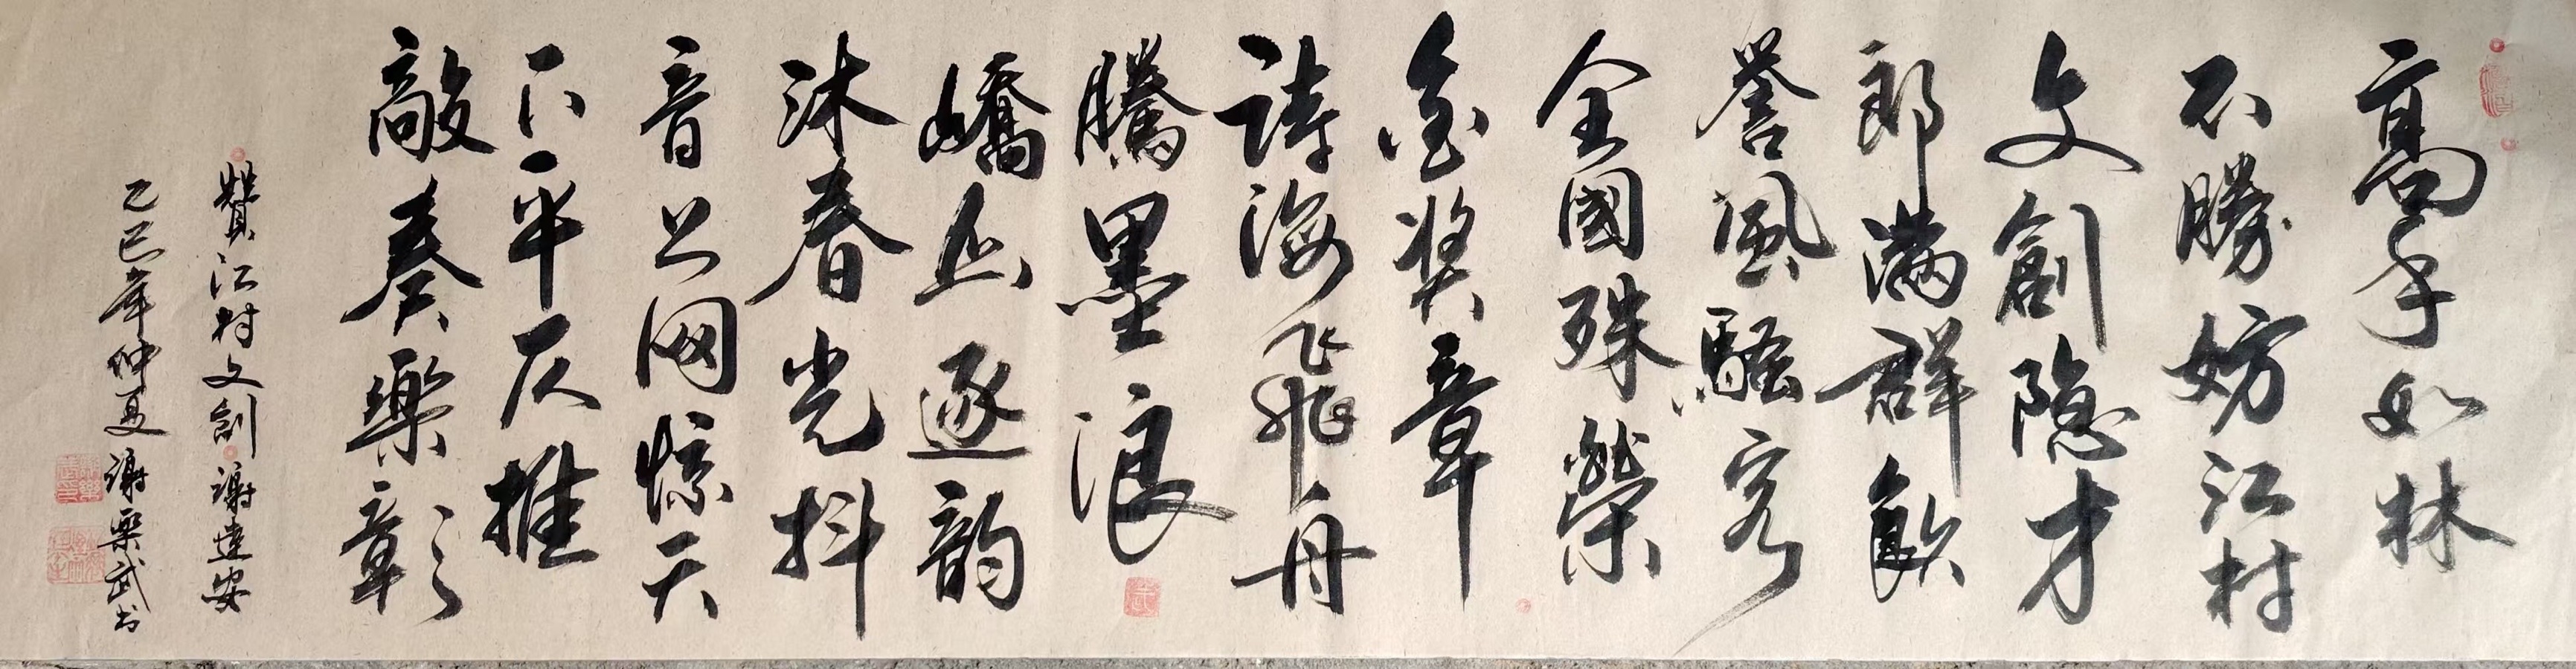 高手如林
不勝妨江村
文創隐才
郎满群飲
誉風騷客
全國殊榮
金奖章
詩海飛舟
騰墨浪
嬌丛逐韵
沐春光抖
音上网惊天
下平仄推
敲奏樂彰
贊江村文創 謝達安
乙巳年仲夏 謝樂武书